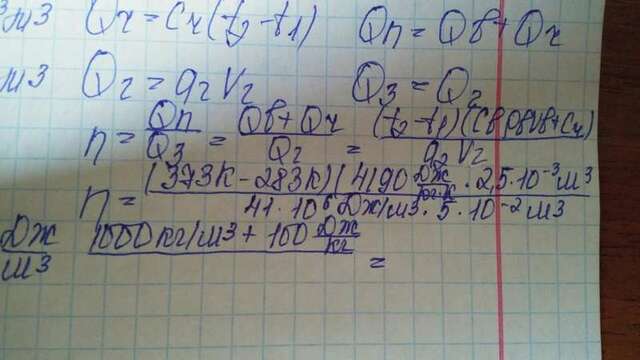 ³м3 Qч = Cч(t2-t1) Qп = Qв + Qч
м3 Qг = qг Vг Qз = Qг
n = Qп/Qз = Qв+Qч/Qг = (t2-t1)(CвρвVв+Cч)/qг Vг
n = (373К - 283К)(4190 Дж/кг·К · 2,5·10⁻³ м³
41·10⁶ Дж/м3 · 5·10⁻² м3
Дж/м3 1000кг/м3 + 100 Дж/кг =